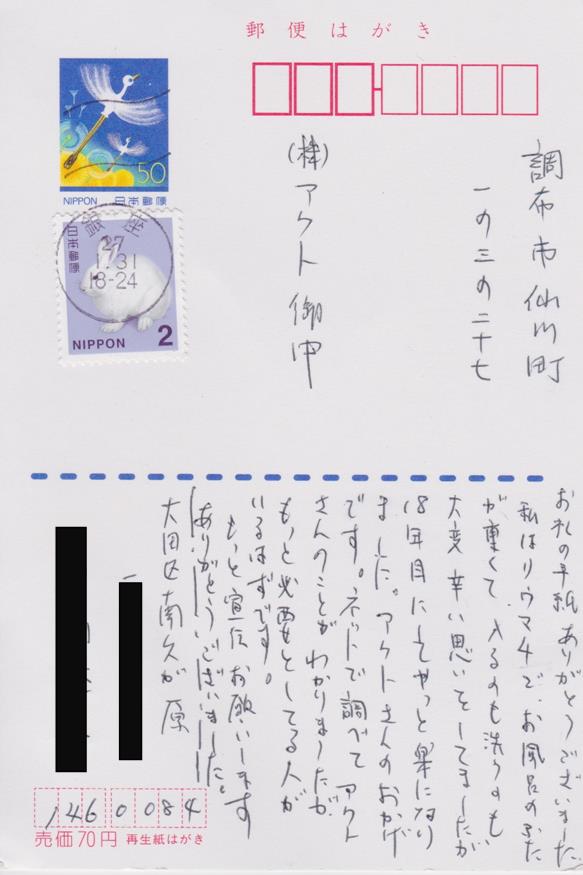 郵便はがき
50
NIPPON 日本郵便
日本郵便
銀座
27
1.31
18-24
NIPPON 2
調布市仙川町
一の三の二十七
(株)アクト御中
お礼の手紙ありがとうございました
私はリウマチで、お風呂のふた
が重くて、入るのも洗うのも
大変辛い思いをしてましたが
18年目にしてやっと楽になり
ました。アクトさんのおかげ
です。ネットで調べてアクト
さんのことがわかりましたが
もっと必要としてる人が
いるはずです。
もっと宣伝お願いします
ありがとうございました。
大田区南久が原
146 0084
売価70円 再生紙はがき